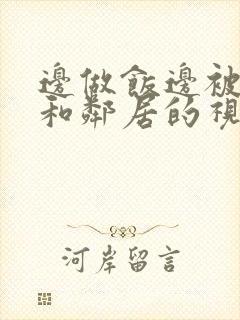 邊做飯邊被
和鄰居的視
河岸留言